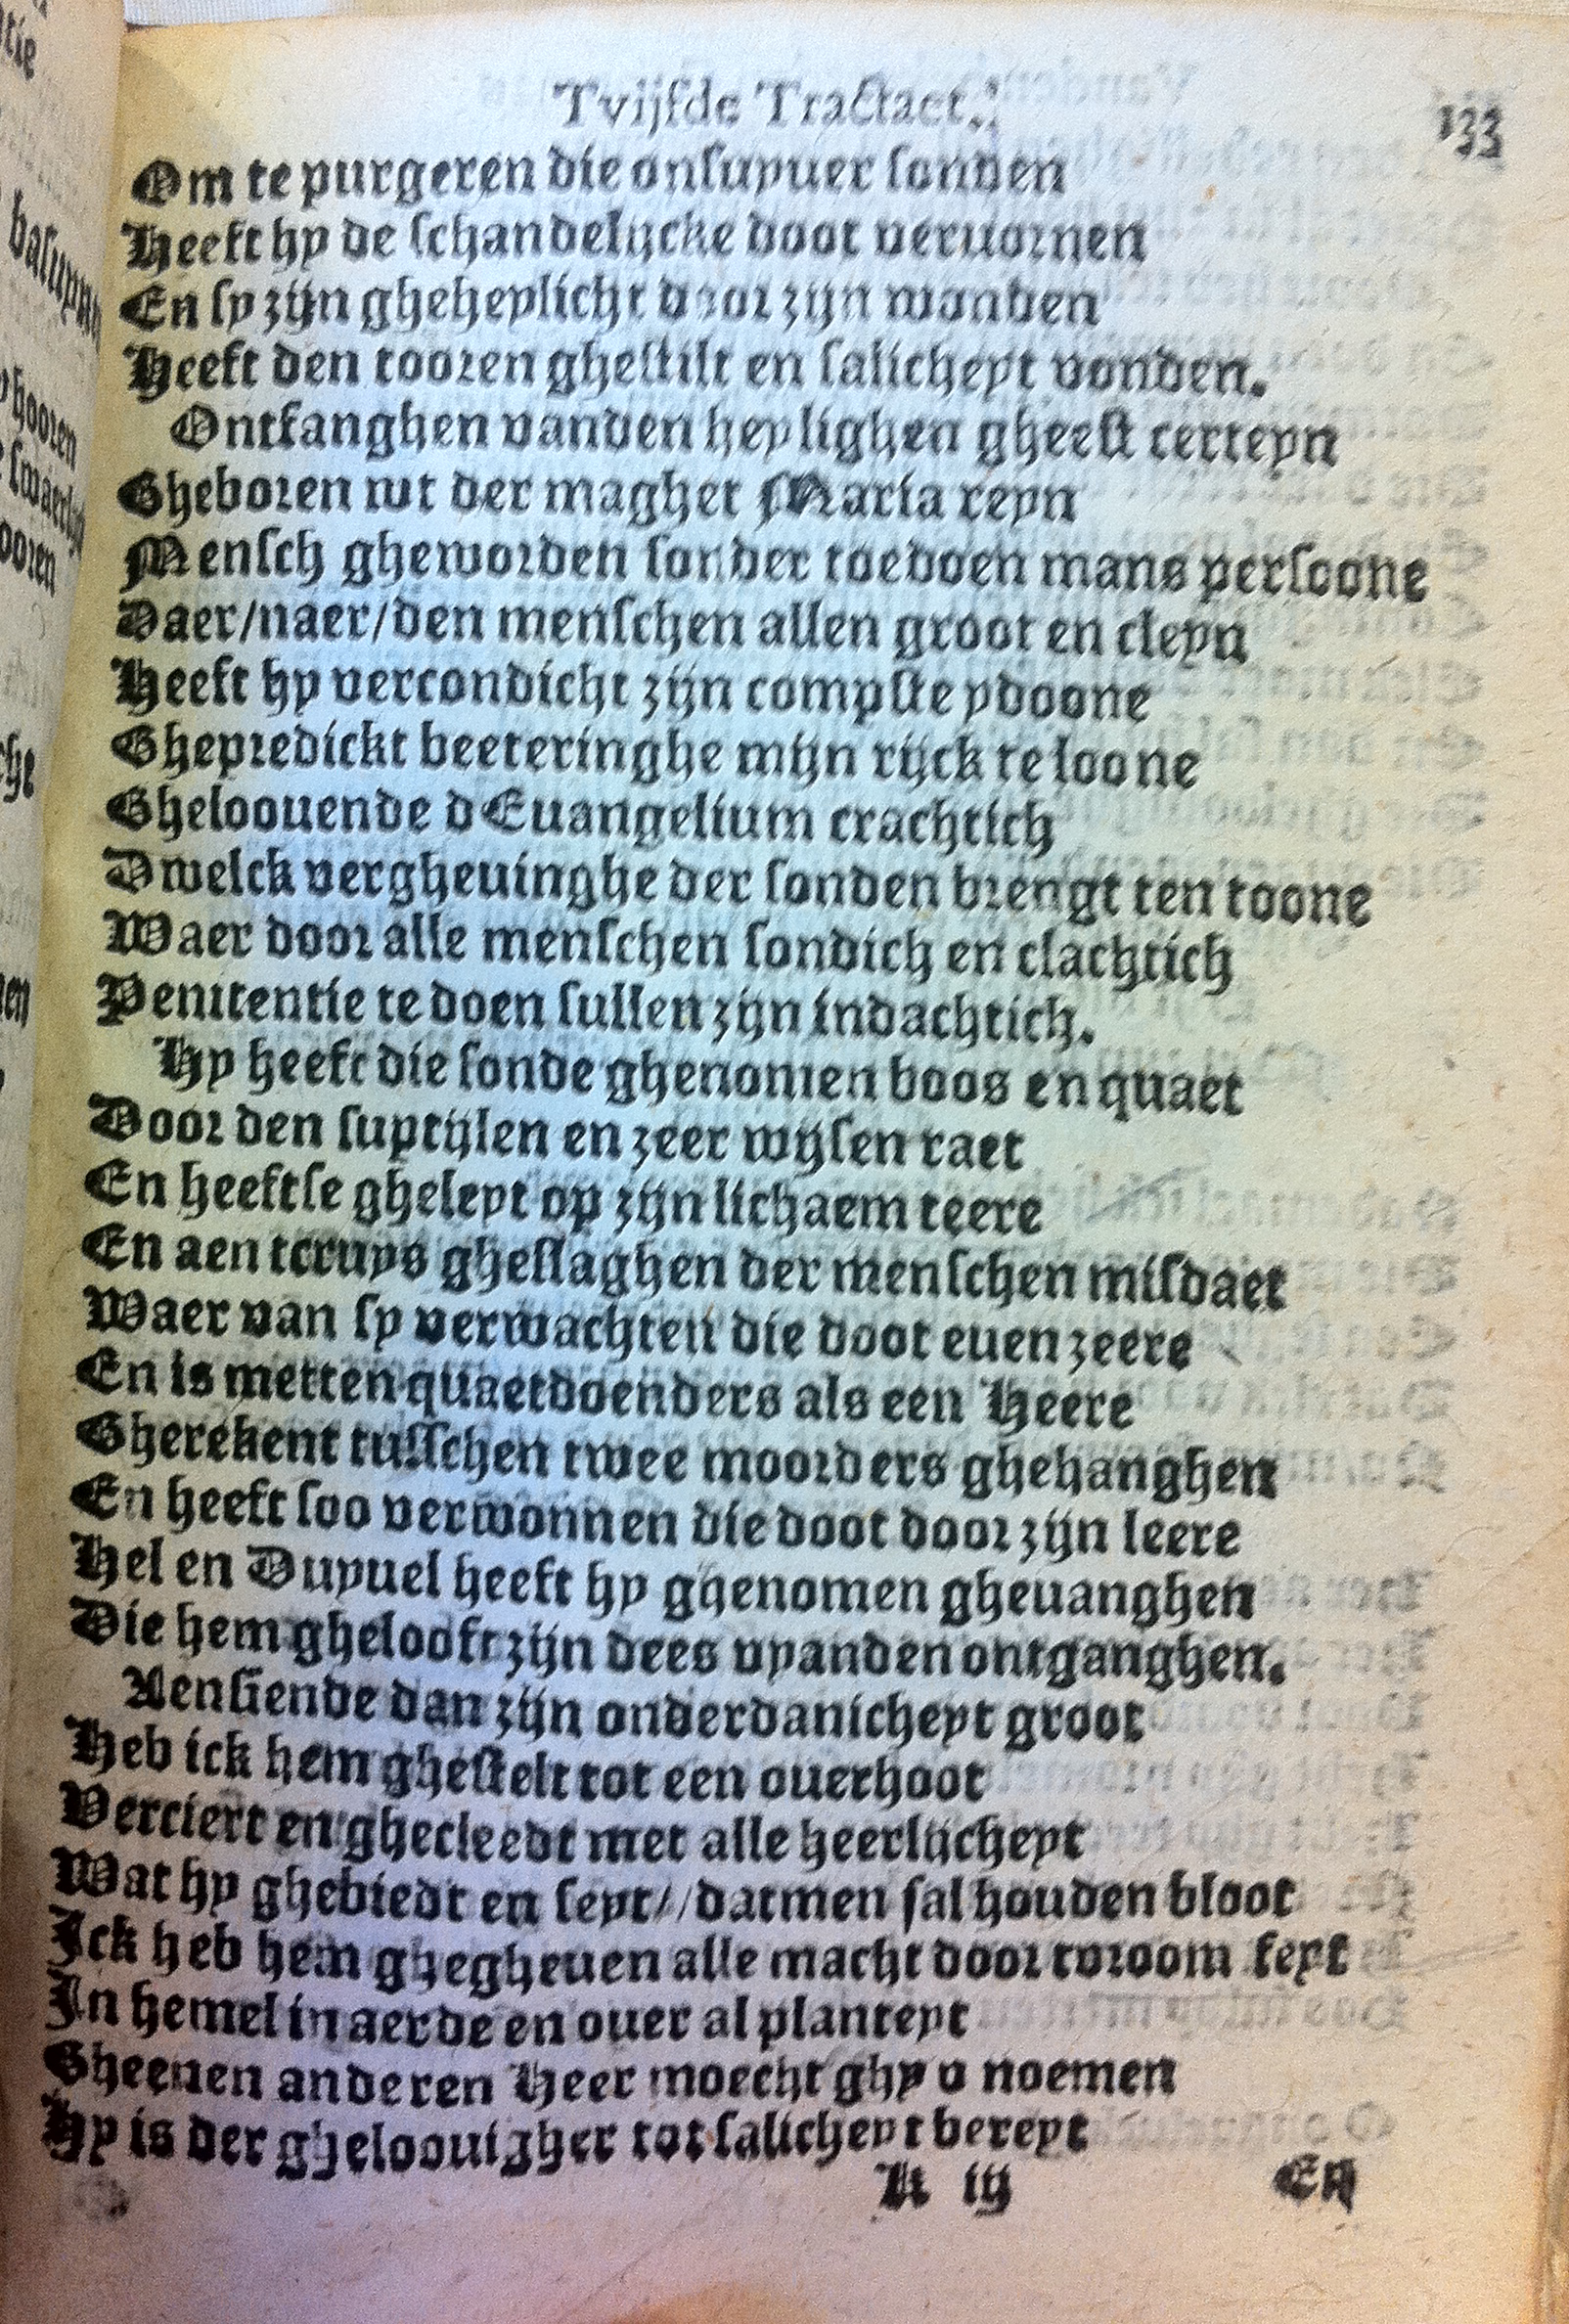 Tvijfde Tractaet.
133
Om te purgeren die onſupuer ſonden
Heeft hy de ſchandelijcke doot veruornen
En ſy zijn gheheylicht door zijn wonden
Heeft den tooren gheſtilt en ſalicheyt vonden.
Ontfanghen vanden heylighen gheeſt certeyn
Gheboren wt der maghet Maria reyn
Menſch gheworden ſonder toedoen mans perſoone
Daer/naer/den menſchen allen groot en cleyn
Heeft hy vercondicht zijn compſte ydoone
Ghepredickt beeteringhe mijn rijck te loone
Gheloouende dEuangelium crachtich
Dwelck vergheuinghe der ſonden brengt ten toone
Waer door alle menſchen ſondich en clachtich
Penitentie te doen ſullen zijn indachtich.
Hy heeft die ſonde ghenomen boos en quaet
Door den ſuptijlen en zeer wijſen raet
En heeftſe gheleyt op zijn lichaem teere
En aen tcruys gheſlaghen der menſchen miſdaet
Waer van ſy verwachten die doot euen zeere
En is metten quaetdoenders als een Heere
Gherekent tuſſchen twee moorders ghehanghen
En heeft ſoo verwonnen die doot door zijn leere
Hel en Duyuel heeft hy ghenomen gheuanghen
Die hem ghelooft zijn dees vyanden ontganghen.
Aenſiende dan zijn onderdanicheyt groot
Heb ick hem gheſtelt tot een ouerhoot
Verciert en ghecleedt met alle heerlijcheyt
Wat hy ghebiedt en ſeyt//datmen ſal houden bloot
Ick heb hem ghegheuen alle macht door tvroom feyt
In hemel in aerde en ouer al planteyt
Gheenen anderen Heer moecht ghy v noemen
Hy is der gheloouigher tot ſalicheyt bereyt
R iij
En
baſuyn
hooren